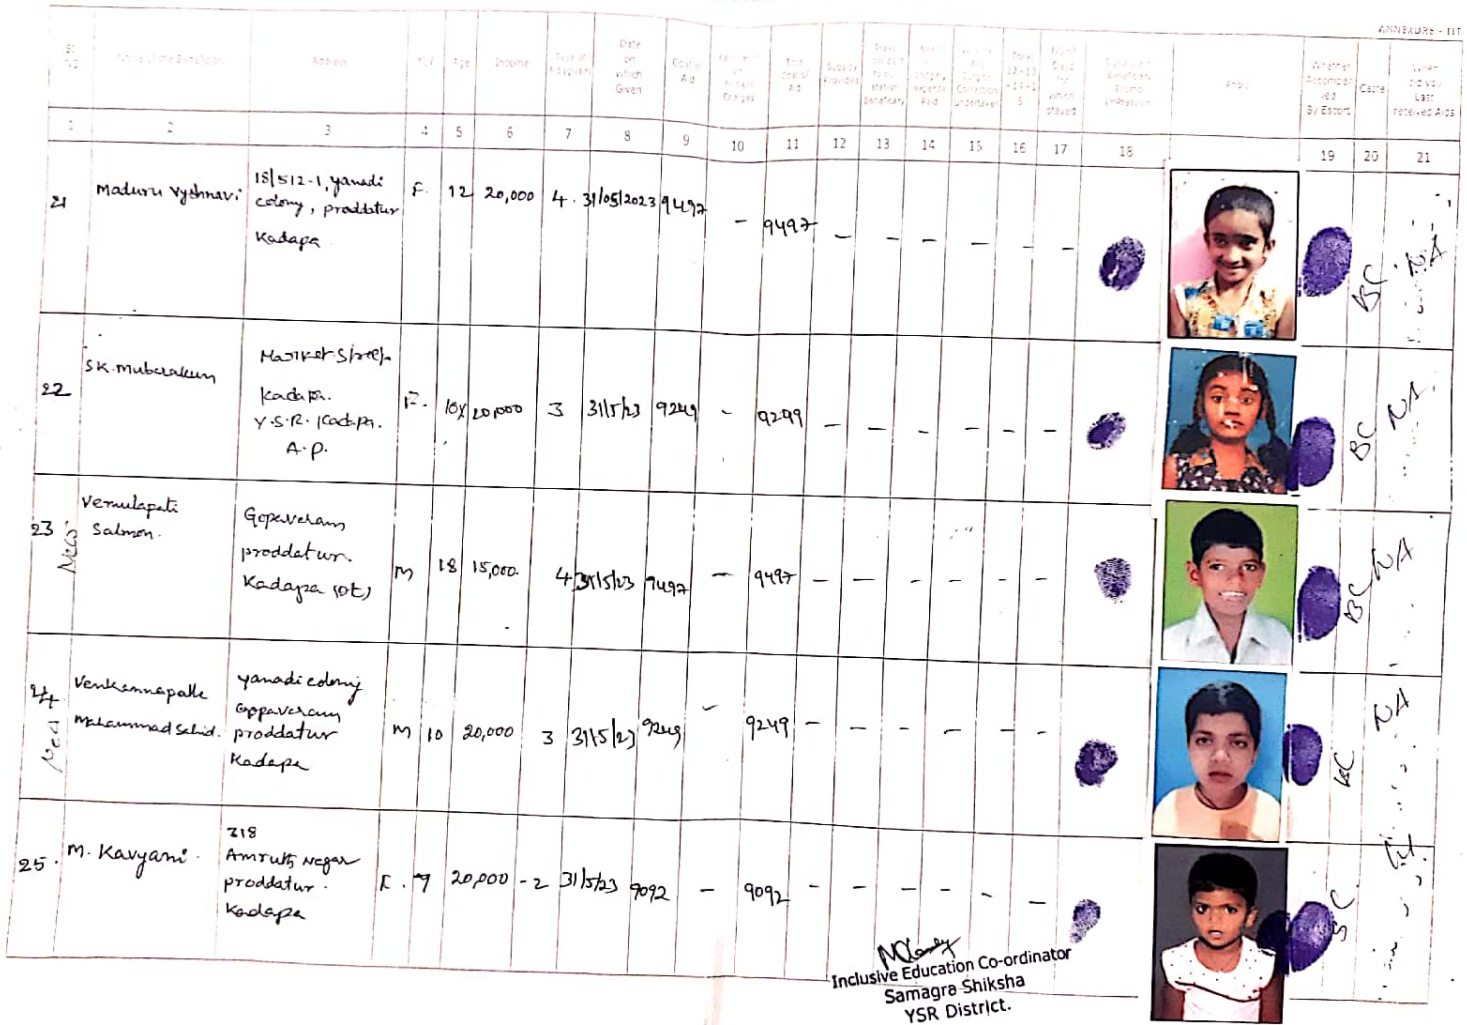 ANNEXURE - III
Sl
No
Name of the Beneficiary
Address
M/F
Age
Income
Type of
Aid given
Date
on
which
Given
Cost of
Aid
Total
Cost of
Aid
Subsidy
Provided
No of
days
for
which
stayed
Photo
Whether
Accompan
ied
By Escort
Caste
Last
received Aids
1 2 3 4 5 6 7 8 9 10 11 12 13 14 15 16 17 18 19 20 21
21 Maduru Vyshnavi 18/512-1, yanadi
colony, proddatur
Kadapa
F. 12 20,000 4. 31/05/2023 9497 - 9497 - - - - - - BC NA
22 SK. Mubarakun Market Street
Kadapa.
Y.S.R. Kadapa.
A.P.
F. 10 20,000 3 31/5/23 9249 - 9249 - - - - - - BC NA
23 Vemulapati
Salmon.
Gopavaram
proddatur.
Kadapa (Dt)
M 18 15,000. 4 31/5/23 9497 - 9497 - - - - - - BC NA
24 Venkannapalle
Mahammad Sahid.
yanadi colony
Gopavaram
proddatur
Kadapa
M 10 20,000 3 31/5/23 9249 - 9249 - - - - - - BC NA
25. M. Kavyani.
318
Amruth Nagar
proddatur.
Kadapa
F. 9 20,000 - 2 31/5/23 9092 - 9092 - - - - - - SC
Inclusive Education Co-ordinator
Samagra Shiksha
YSR District.